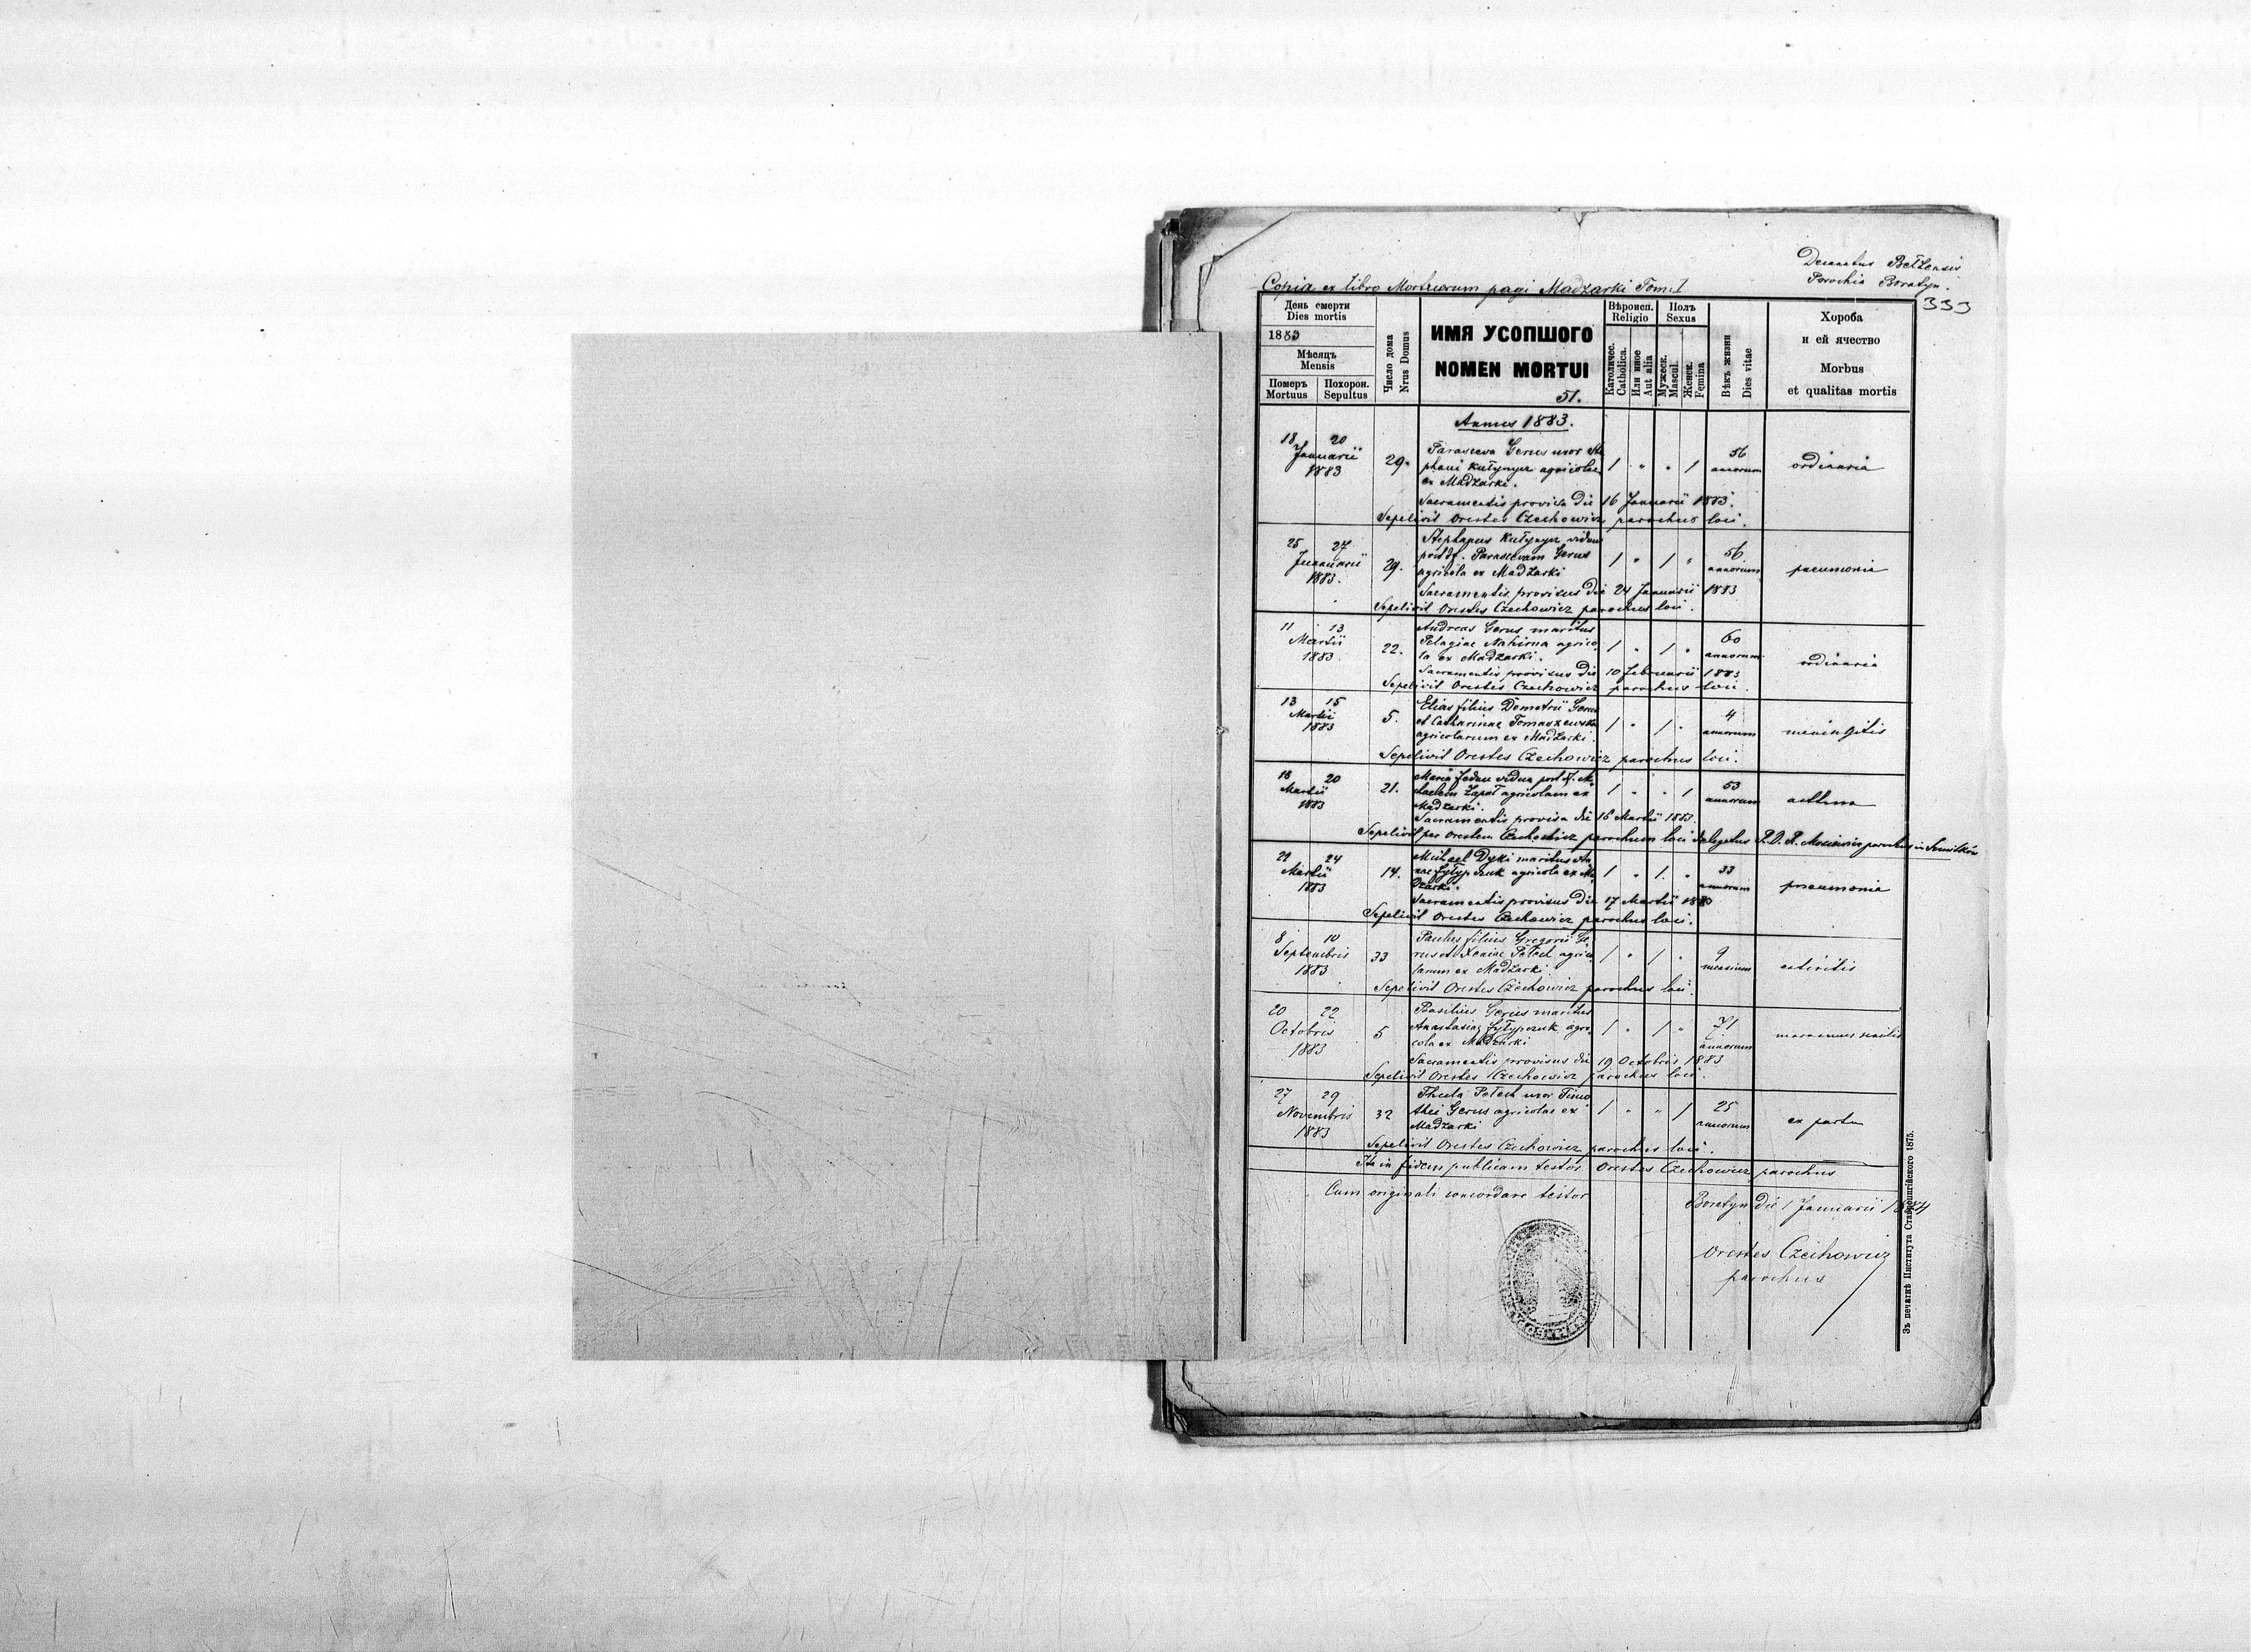 Decanatus Bełzensis
Parochia Boratyn.
Copia ex libro Mortuorum pagi Madzarki Tom: I
333
День смерти
Dies mortis
1883
Мѣсяцъ
Mensis
Померъ
Mortuus
Похорон.
Sepultus
Число дома
Nrus Domus
ИМЯ УСОПШОГО
NOMEN MORTUI
51.
Вѣроисп.
Religio
Католичес.
Catholica.
Или иное
Aut alia
Полъ
Sexus
Мужеск.
Mascul.
Женск.
Femina
Вѣкъ жизни
Dies vitae
Хороба
и ей ячество
Morbus
et qualitas mortis
Annus 1883.
18 20
Januarii
1883
29.
Parasceva Gerus uxor Ste
phani Kułynycz agricolae
ex Madzarki.
1 " " 1
56
annorum
ordinaria
Sacramentis provisa die 16 Januarii 1883.
Sepelivit Orestes Czechowicz parochus loci.
25 27
Januarii
1883.
29.
Stephanus Kułynycz viduus
post df. Parascevam Gerus
agricola ex Madzarki
1 " 1 "
56
annorum
pneumonia
Sacramentis provisus die 24 Januarii 1883
Sepelivit Orestes Czechowicz parochus loci.
11 13
Martii
1883.
22.
Andreas Gerus maritus
Pelagiae Nahirna agrico
la ex Madzarki.
1 " 1 "
60
annorum
ordinaria
Sacramentis provisus die 10 Februarii 1883
Sepelivit Orestes Czechowicz parochus loci.
13 15
Martii
1883
5.
Elias filius Demetrii Gerus
et Catharinae Tomaszewska
agricolarum ex Madzarki.
1 " 1 "
4
annorum
meningitis
Sepelivit Orestes Czechowicz parochus loci.
18 20
Martii
1883
21.
Maria Fedan vidua post df. Mi
chaelem Zapał agricolam ex
Madzarki.
1 " " 1
53
annorum
asthma
Sacramentis provisa die 16 Martii 1883.
Sepelivit per Orestem Czechowicz parochum loci delegatus P.D.R. parochus in
22 24
Martii
1883
14.
Michael Dyki maritus An
nae Fyłypczuk agricola ex Ma
dzarki.
1 " 1. "
33
annorum
pneumonia
Sacramentis provisus die 17 Martii 1883
Sepelivit Orestes Czechowicz parochus loci.
8 10
Septembris
1883
33
Paulus filius Gregorii Ge
rus et Xeniae Pełech agrico
larum ex Madzarki
1 " 1 "
9
mensium
enteritis
Sepelivit Orestes Czechowicz parochus loci.
20 22
Octobris
1883
5
Basilius Gerus maritus
Anastasiae Fyłypczuk agri
cola ex Madzarki
1 " 1 "
71
annorum
marasmus senilis
Sacramentis provisus die 19 Octobris 1883
Sepelivit Orestes Czechowicz parochus loci.
27 29
Novembris
1883
32
Thecla Pełech uxor Timo
thei Gerus agricolae ex
Madzarki
1 " " 1
25
annorum
ex partu
Sepelivit Orestes Czechowicz parochus loci.
Ita in fidem publicam testor Orestes Czechowicz parochus
Cum originali concordare testor
Boratyn die 1 Januarii 1884
Orestes Czechowicz
parochus
Зъ печатнѣ Института Ставропигійского 1875.